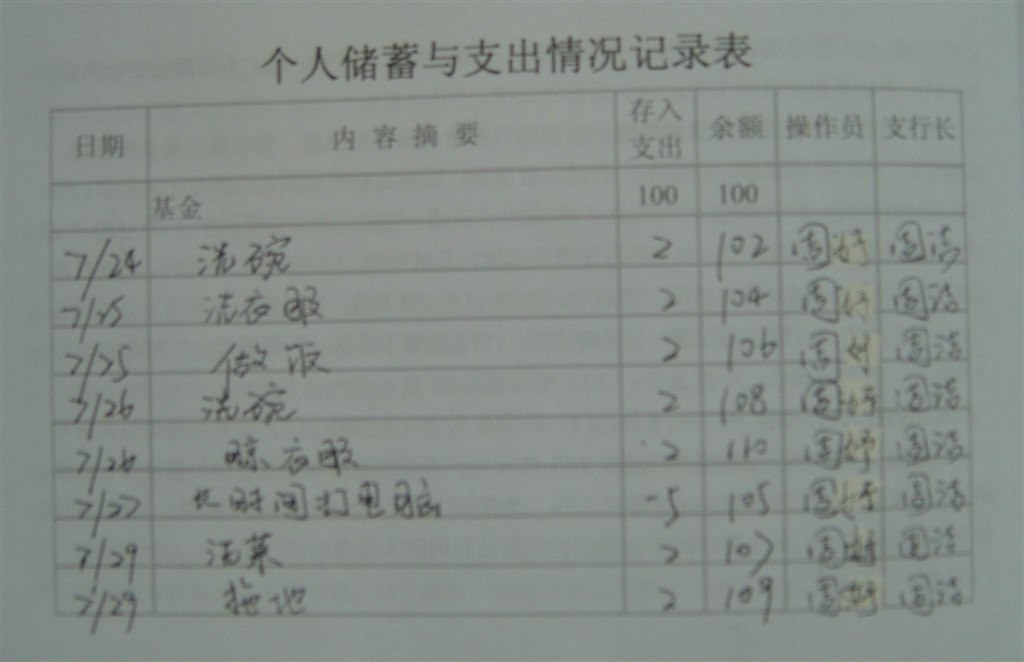 个人储蓄与支出情况记录表
日期 内容摘要 存入支出 余额 操作员 支行长
基金 100 100
7/24 洗碗 2 102 周 周洁
7/25 洗衣服 2 104 周 周洁
7/25 做饭 2 106 周 周洁
7/26 洗碗 2 108 周 周洁
7/26 晾衣服 2 110 周 周洁
7/27 长时间打电脑 -5 105 周 周洁
7/29 洗菜 2 107 周 周洁
7/29 拖地 2 109 周 周洁